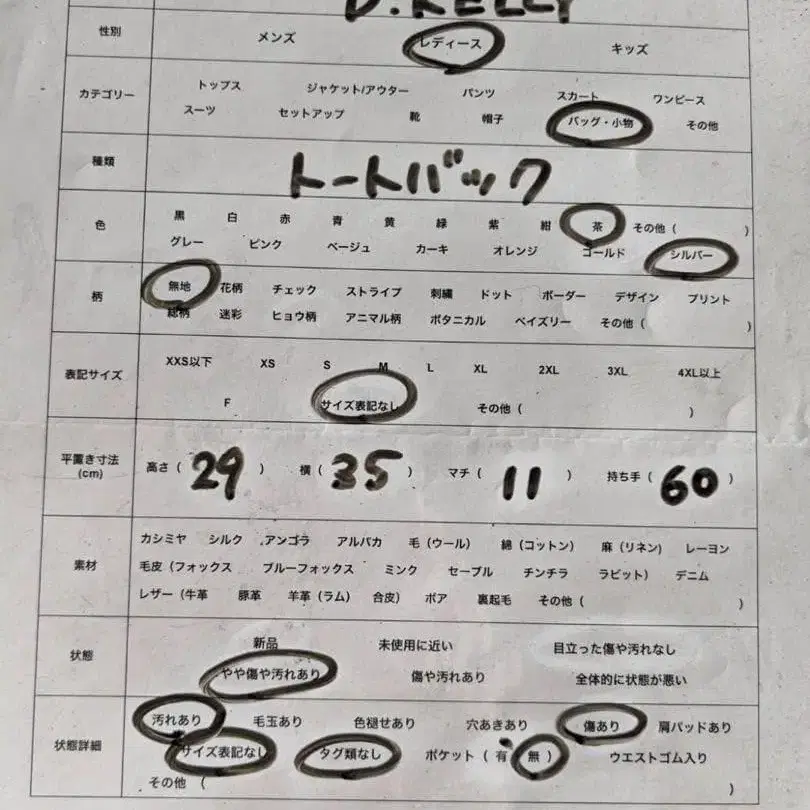 D.KELLY
性別 メンズ レディース キッズ
カテゴリー トップス ジャケット/アウター パンツ スカート ワンピース
スーツ セットアップ 靴 帽子 バッグ・小物 その他
種類 トートバック
色 黒 白 赤 青 黄 緑 紫 紺 茶 その他 ( )
グレー ピンク ベージュ カーキ オレンジ ゴールド シルバー
柄 無地 花柄 チェック ストライプ 刺繍 ドット ボーダー デザイン プリント
総柄 迷彩 ヒョウ柄 アニマル柄 ボタニカル ペイズリー その他 ( )
表記サイズ XXS以下 XS S M L XL 2XL 3XL 4XL以上
F サイズ表記なし その他 ( )
平置き寸法 (cm) 高さ ( 29 ) 横 ( 35 ) マチ ( 11 ) 持ち手 ( 60 )
素材 カシミヤ シルク アンゴラ アルパカ 毛 (ウール) 綿 (コットン) 麻 (リネン) レーヨン
毛皮 (フォックス ブルーフォックス ミンク セーブル チンチラ ラビット) デニム
レザー (牛革 豚革 羊革 (ラム) 合皮) ボア 裏起毛 その他 ( )
状態 新品 未使用に近い 目立った傷や汚れなし
やや傷や汚れあり 傷や汚れあり 全体的に状態が悪い
状態詳細 汚れあり 毛玉あり 色褪せあり 穴あきあり 傷あり 肩パッドあり
サイズ表記なし タグ類なし ポケット ( 有 無 ) ウエストゴム入り
その他 ( )